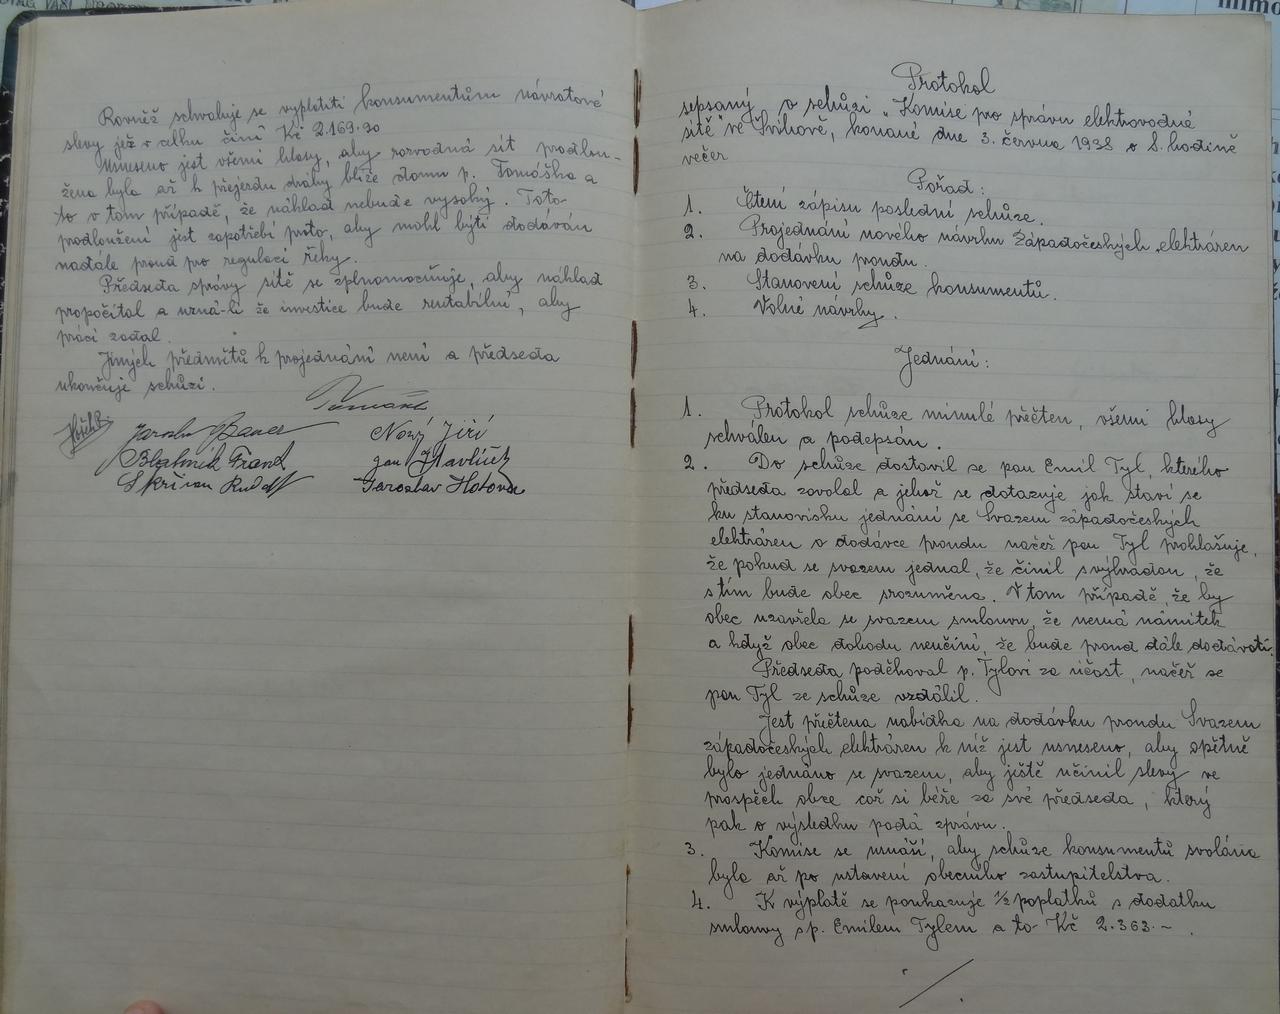 Rovněž schvaluje se vyplatiti konsumentům návratové
slevy jež v celku činí Kč 2.169.90
Usneseno jest všemi hlasy, aby rozvodná síť prodlou-
žena byla až k přejezdu dráhy blíže domu p. Tomáška a
to v tom případě, že náklad nebude vysoký. Toto
prodloužení jest zapotřebí proto, aby mohl býti dodáván
nadále proud pro regulaci řeky.
Předseda správy sítě se zplnomocňuje, aby náklad
propočítal a uzná-li že investice bude rentabilní, aby
práci zadal.
Jiných předmětů k projednání není a předseda
ukončuje schůzi.
Tomášek
Jaroslav Bauer Nový Jiří
Blahník Frant Jan Havlíček
Skřivan Rudolf Jaroslav Hotovec
Protokol
sepsaný o schůzi „Komise pro správu elektrovodné
sítě" ve Švihově, konané dne 3. června 1938 o 8. hodině
večer
Pořad:
1. Čtení zápisu poslední schůze.
2. Projednání nového návrhu Západočeských elektráren
na dodávku proudu.
3. Stanovení schůze konsumentů.
4. Volné návrhy.
Jednání:
1. Protokol schůze minulé přečten, všemi hlasy
schválen a podepsán.
2. Do schůze dostavil se pan Emil Tyl, kterého
předseda zavolal a jehož se dotazuje jak staví se
ku stanovisku jednání se Svazem západočeských
elektráren o dodávce proudu načež pan Tyl prohlašuje,
že pokud se svazem jednal, že činil s výhradou, že
s tím bude obec srozuměna. V tom případě, že by
obec uzavřela se svazem smlouvu, že nemá námitek
a když obec dohodu neučiní, že bude proud dále dodávati.
Předseda poděkoval p. Tylovi za účast, načež se
pan Tyl ze schůze vzdálil.
Jest přečtena nabídka na dodávku proudu Svazem
západočeských elektráren k níž jest usneseno, aby opětně
bylo jednáno se svazem, aby ještě učinil slevy ve
prospěch obce což si béře za své předseda, který
pak o výsledku podá zprávu.
3. Komise se usnáší, aby schůze konsumentů svolána
byla až po ustavení obecního zastupitelstva.
4. K výplatě se poukazuje ½ poplatků s dodatku
smlouvy s p. Emilem Tylem a to Kč 2.363.-.